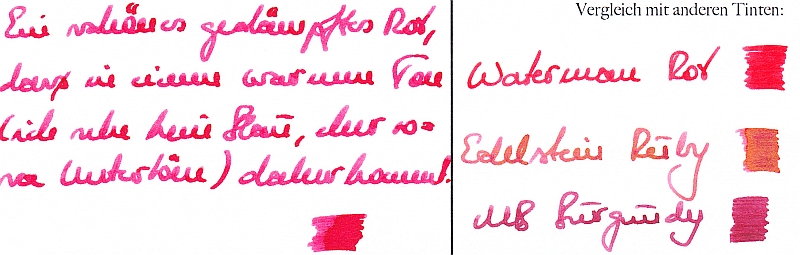 Ein schönes gedämpftes Rot,
das in einem warmen Ton
(ich sehe kein Blau, eher ro=
sa Untertöne) daherkommt.
Vergleich mit anderen Tinten:
Waterman Rot
Edelstein Ruby
MB Burgundy